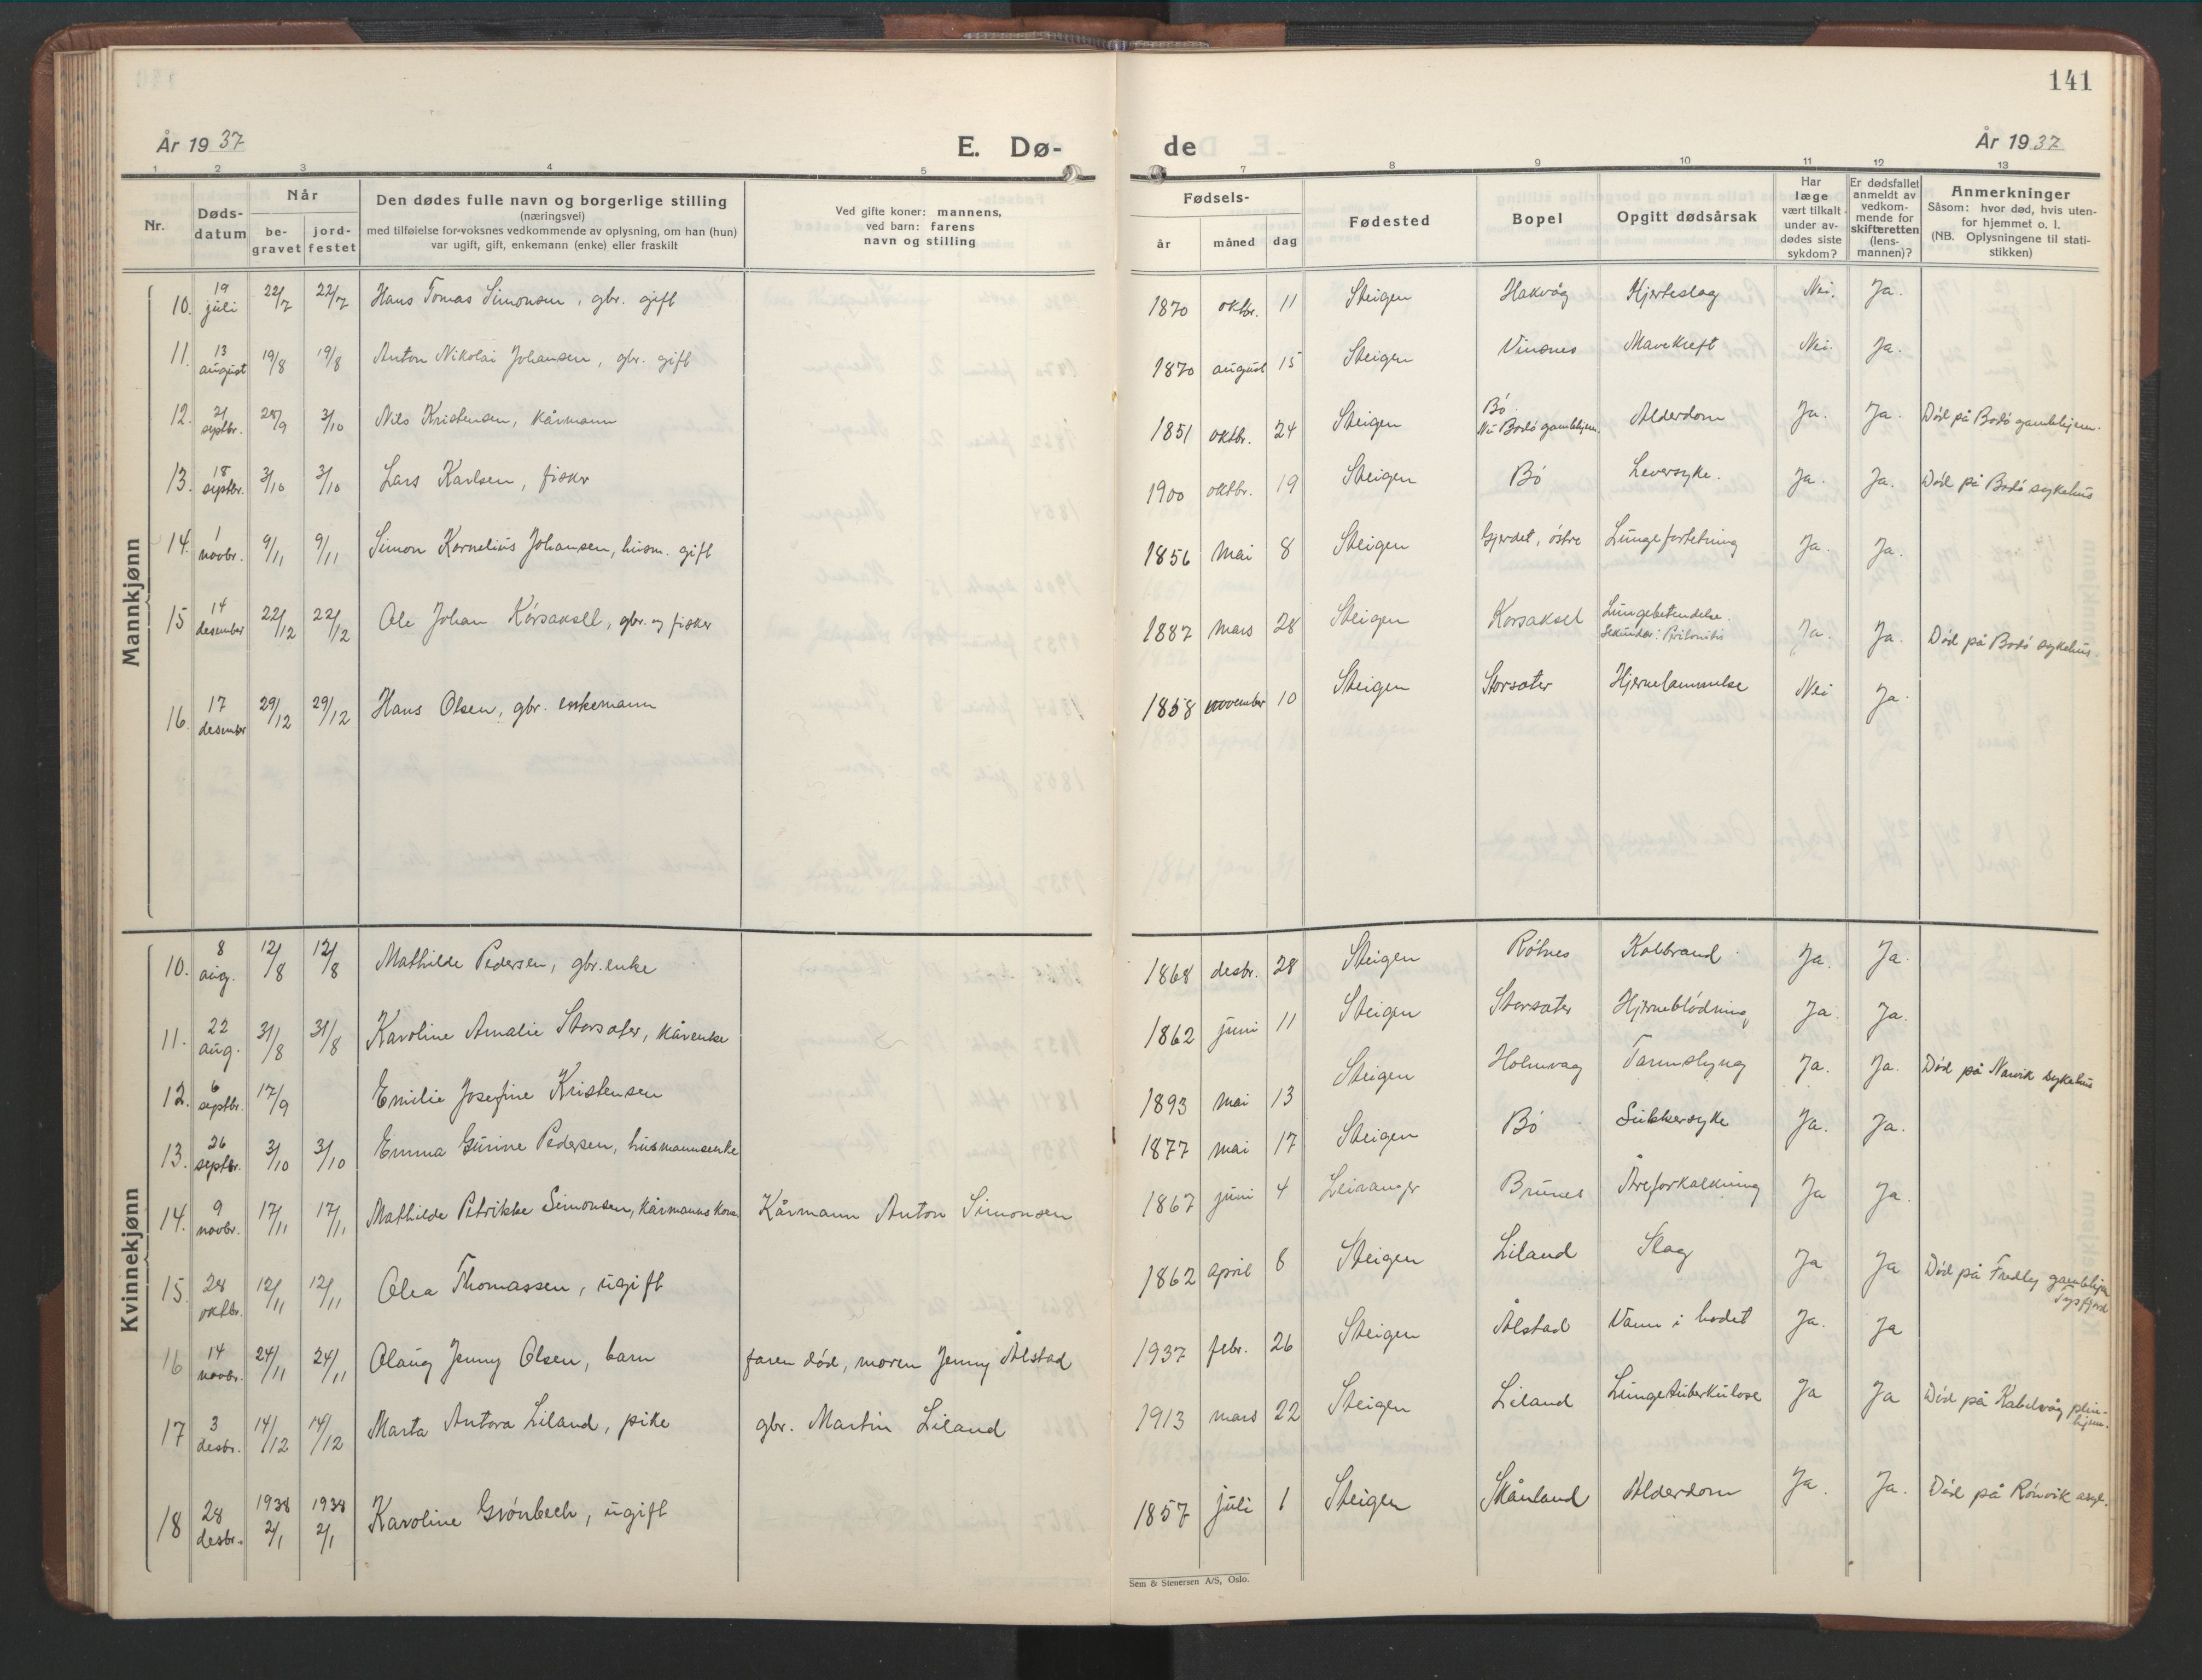 141
År 1937 E. Dø- de År 1937
1 2 3 4 5 7 8 9 10 11 12 13
Nr.
Døds-
datum
Når
be-
gravet
jord-
festet
Den dødes fulle navn og borgerlige stilling
(næringsvei)
med tilføielse for voksnes vedkommende av oplysning, om han (hun)
var ugift, gift, enkemann (enke) eller fraskilt
Ved gifte koner: mannens,
ved barn: farens
navn og stilling
Fødsels-
år måned dag
Fødested
Bopel
Opgitt dødsårsak
Har
læge
vært tilkalt
under av-
dødes siste
sykdom?
Er dødsfallet
anmeldt av
vedkom-
mende for
skifteretten
(lens-
mannen)?
Anmerkninger
Såsom: hvor død, hvis uten-
for hjemmet o. l.
(NB. Oplysningene til stati-
stikken)
Mannkjønn
10. 19 juli 22/7 22/7 Hans Tomas Simonsen, gbr. gift 1870 oktbr. 11 Steigen Hakvåg Hjerteslag Nei. Ja.
11. 13 august 19/8 19/8 Anton Nikolai Johansen, gbr. gift 1870 august 15 Steigen Vinsnes Mavekreft Nei. Ja.
12. 21 septbr. 28/9 3/10 Nils Kristensen, kårmann 1851 oktbr. 24 Steigen Bö. Nu Bodö gamlehjem. Alderdom Ja. Ja. Död på Bodö gamlehjem.
13. 18 septbr. 3/10 3/10 Lars Karlsen, fisker 1900 oktbr. 19 Steigen Bö Leversyke. Ja. Ja. Död på Bodö sykehus
14. 1 novbr. 9/11 9/11 Simon Kornelius Johansen, husm. gift 1856 mai 8 Steigen Gjerdet, östre Lungefortetning Ja. Ja.
15 14 desember 22/12 22/12 Ole Johan Körsaksell, gbr. og fisker 1887 mars 28 Steigen Korsaksel Lungebetendelse. Sekundær: Peritonitis Ja. Ja. Död på Bodö sykehus.
16. 17 desember 29/12 29/12 Hans Olsen, gbr. enkemann 1858 november 10 Steigen Storsæter Hjernelammelse Nei Ja.
Kvinnekjønn
10. 8 aug. 12/8 12/8 Mathilde Pedersen, gbr. enke 1868 desbr. 28 Steigen Rötnes Kolbrand Ja. Ja.
11. 22 aug. 31/8 31/8 Karoline Amalie Storsæter, kårenke 1862 juni 11 Steigen Storsæter Hjerneblödning Ja. Ja.
12. 6 septbr. 17/9 Emilie Josefine Kristensen 1893 mai 13 Steigen Holmvåg Tarmslyng Ja. Ja. Död på Narvik sykehus
13. 26 septbr. 3/10 3/10 Emma Gurine Pedersen, husmannsenke 1877 mai 17 Steigen Bö Sukkersyke Ja. Ja.
14. 9 novbr. 17/11 17/11 Mathilde Petrikke Simonsen, kårmanns kone Kårmann Anton Simonsen 1867 juni 4 Leiranger Brunes Åreforkalkning Ja Ja.
15. 28 oktbr. 12/11 12/11 Olea Thomassen, ugift 1862 april 8 Steigen Liland Slag Ja Ja Död på Fredly gamlehjem
16 14 novbr. 24/11 24/11 Olaug Jenny Olsen, barn faren död, moren Jenny Ålstad 1937 febr. 26 Steigen Ålstad Vann i hodet Ja. Ja
17 3 desbr. 14/12 14/12 Marta Antora Liland, pike gbr. Martin Liland 1913 mars 22 Steigen Liland Lungetuberkulose Ja Ja Död på Kabelvåg pleie-hjem.
18 28 desbr. 1938 2/1 1938 2/1 Karoline Grönbech, ugift 1857 juli 1 Steigen Skånland Alderdom Ja. Ja. Död på Rönvik asyl.
Sem & Stenersen A/S, Oslo.